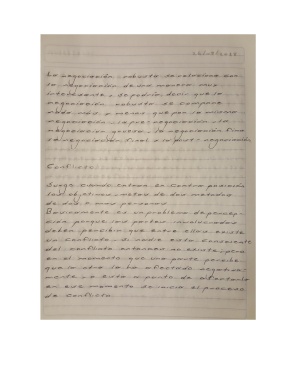 La negociación robusta se relaciona con
la negociación de una manera muy
inteligente, se podría decir que la
negociación robusta se compone
nada más y menos que por la misma
negociación, la pre-negociación, la
negociación gruesa, la negociación fina
la negociación final y la post-negociación.
Conflicto:
Surge cuando entran en contra posición
los objetivos, metas o los métodos
de dos o más personas.
Básicamente es un problema de percep-
ción porque las partes involucradas
deben percibir que entre ellas existe
un conflicto. Si nadie está consciente
del conflicto entonces no existe, pero
en el momento que una parte percibe
que la otra la ha afectado negativa-
mente o está a punto de afectarla
en ese momento se inicia el proceso
de conflicto.